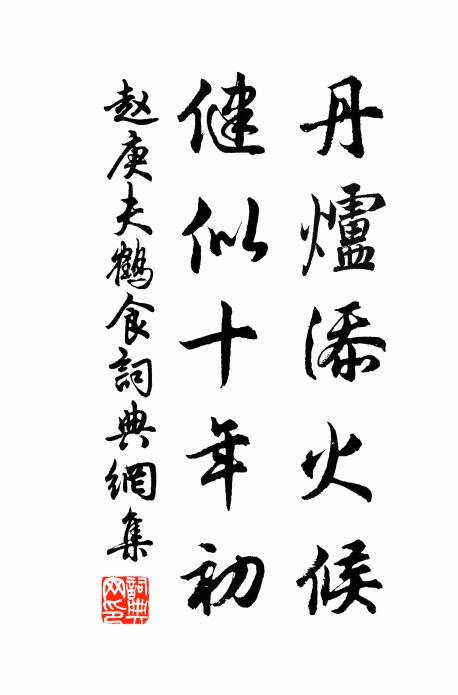 丹爐添火候
健似十年初
赵庚夫鶴食詞典網集
詞典網印